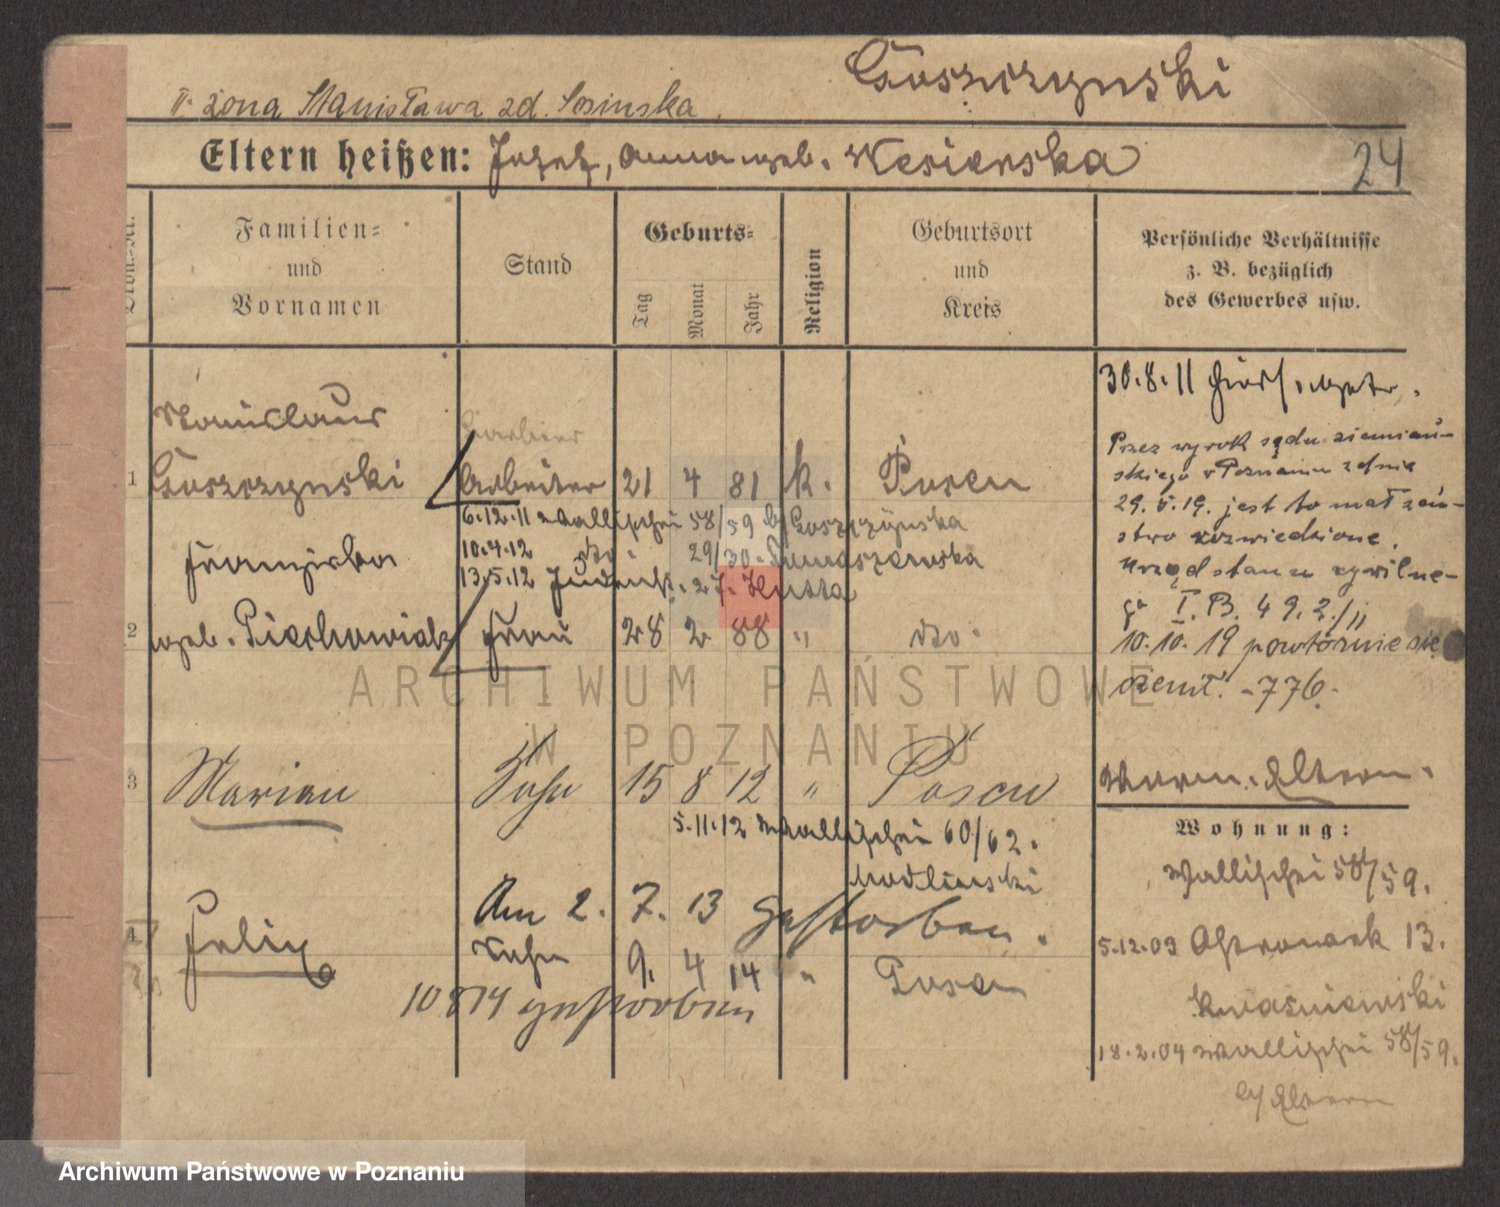 Goszczynski
II. żona Stanisława zd. Losinska.
Eltern heißen: Josef, Anna geb. Wesierska
24
Familien- und Vornamen
Stand
Geburts-
Tag
Monat
Jahr
Religion
Geburtsort und Kreis
Persönliche Verhältnisse z. B. bezüglich des Gewerbes usw.
30.8.11
Stanislaus
1 Goszczynski Arbeiter 21 4 81 k. Posen
Przez wyrok sądu ziemiań-
skiego w Poznaniu z dnia
29.5.19. jest to małżeń-
stwo rozwiedzione.
Urząd stanu cywilne-
go I. B. 49.2/11
10.10.19 powtórnie się
żenił. -776.
6.12.11 Wallischei 58/59 b/Goszczynska
10.4.12 dto. 29/30. Tomaszewska
13.5.12 Judenstr. 27. Hutta
Franziska
2 geb. Piechowiak Frau 28 2 88 " dto.
3 Marian Sohn 15 8 12 " Posen
5.11.12 Wallischei 60/62.
Modlinski
Am 2. 7. 13 gestorben.
4 Felix Sohn 9. 4 14 " Posen
10 8 14 gestorben
Eltern.
Wohnung:
Wallischei 58/59.
5.12.03 Ostrowek 13.
Kwasniewski
18.2.04 Wallischei 58/59.
b/Eltern
ARCHIWUM PAŃSTWOWE
W POZNANIU
Archiwum Państwowe w Poznaniu